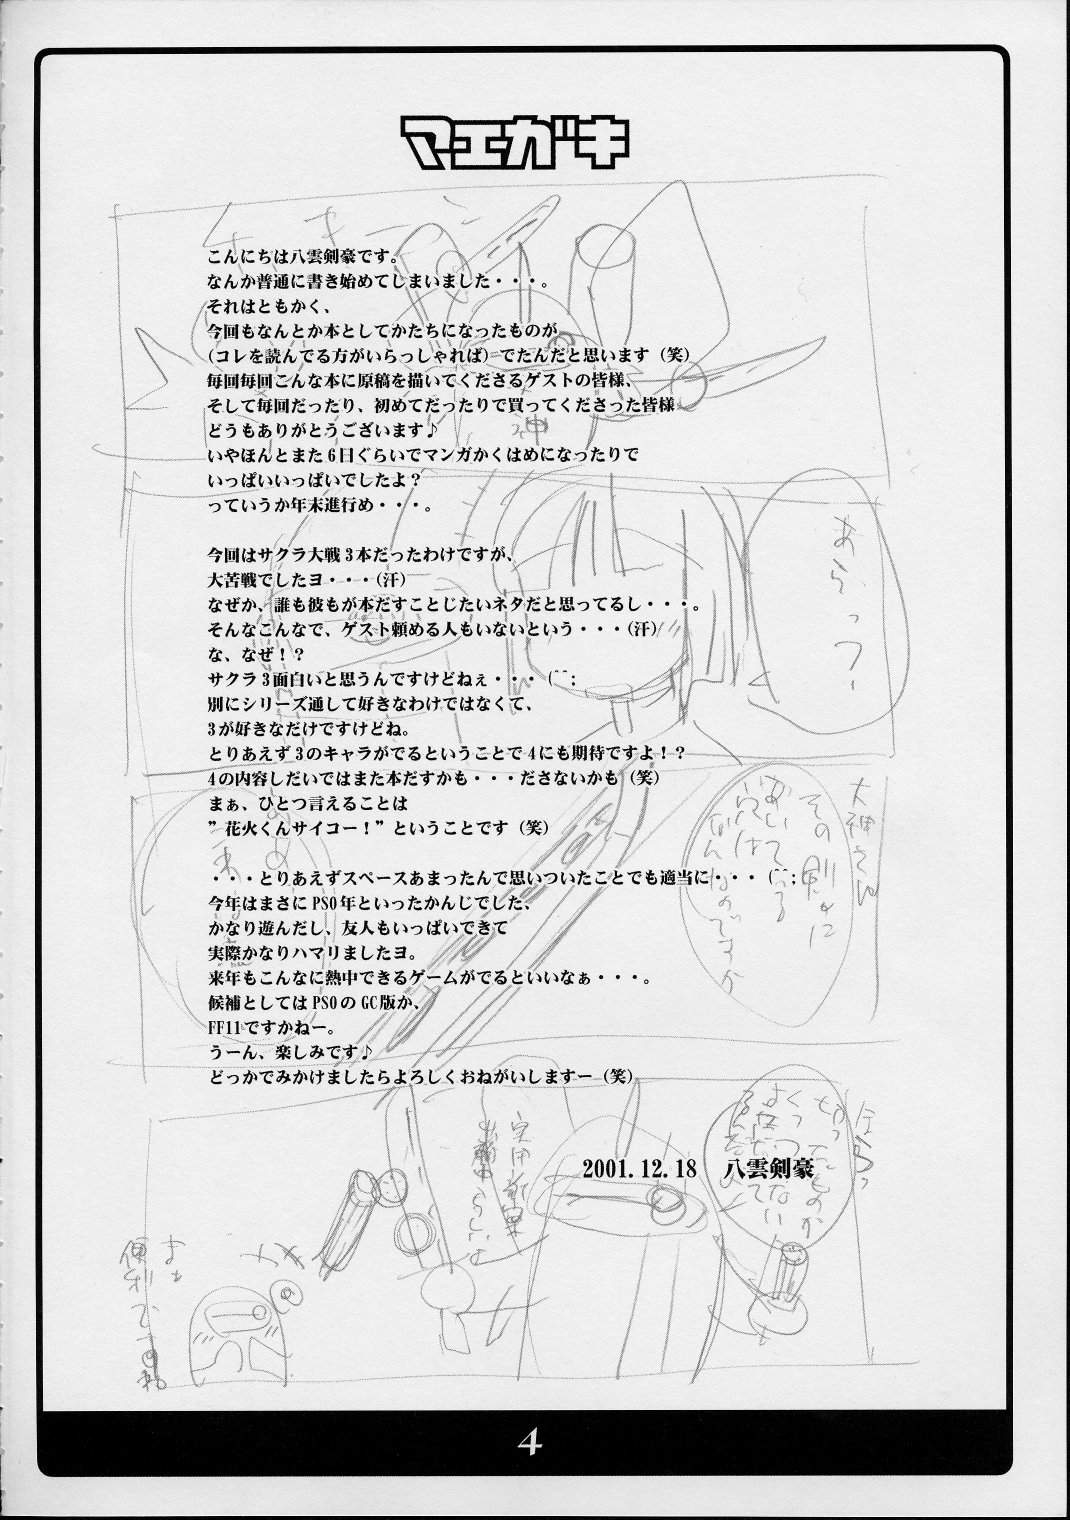 マエガキ
こんにちは八雲剣豪です。
なんか普通に書き始めてしまいました・・・。
それはともかく、
今回もなんとか本としてかたちになったものが
(コレを読んでる方がいらっしゃれば)でたんだと思います(笑)
毎回毎回こんな本に原稿を描いてくださるゲストの皆様、
そして毎回だったり、初めてだったりで買ってくださった皆様
どうもありがとうございます♪
いやほんとまた6日ぐらいでマンガかくはめになったりで
いっぱいいっぱいでしたよ?
っていうか年末進行め・・・。
今回はサクラ大戦3本だったわけですが、
大苦戦でしたヨ・・・(汗)
なぜか、誰も彼もが本だすことじたいネタだと思ってるし・・・。
そんなこんなで、ゲスト頼める人もいないという・・・(汗)
な、なぜ!?
サクラ3面白いと思うんですけどねぇ・・・(^^;
別にシリーズ通して好きなわけではなくて、
3が好きなだけですけどね。
とりあえず3のキャラがでるということで4にも期待ですよ!?
4の内容しだいではまた本だすかも・・・ださないかも(笑)
まぁ、ひとつ言えることは
”花火くんサイコー!”ということです(笑)
・・・とりあえずスペースあまったんで思いついたことでも適当に・・・(^^;
今年はまさにPSO年といったかんじでした、
かなり遊んだし、友人もいっぱいできて
実際かなりハマリましたヨ。
来年もこんなに熱中できるゲームがでるといいなぁ・・・。
候補としてはPSOのGC版か、
FF11ですかねー。
うーん、楽しみです♪
どっかでみかけましたらよろしくおねがいしますー(笑)
2001.12.18 八雲剣豪
あらっ
大神さん
その剣に
あいている
穴は
なんなのですか
便利ですね
4